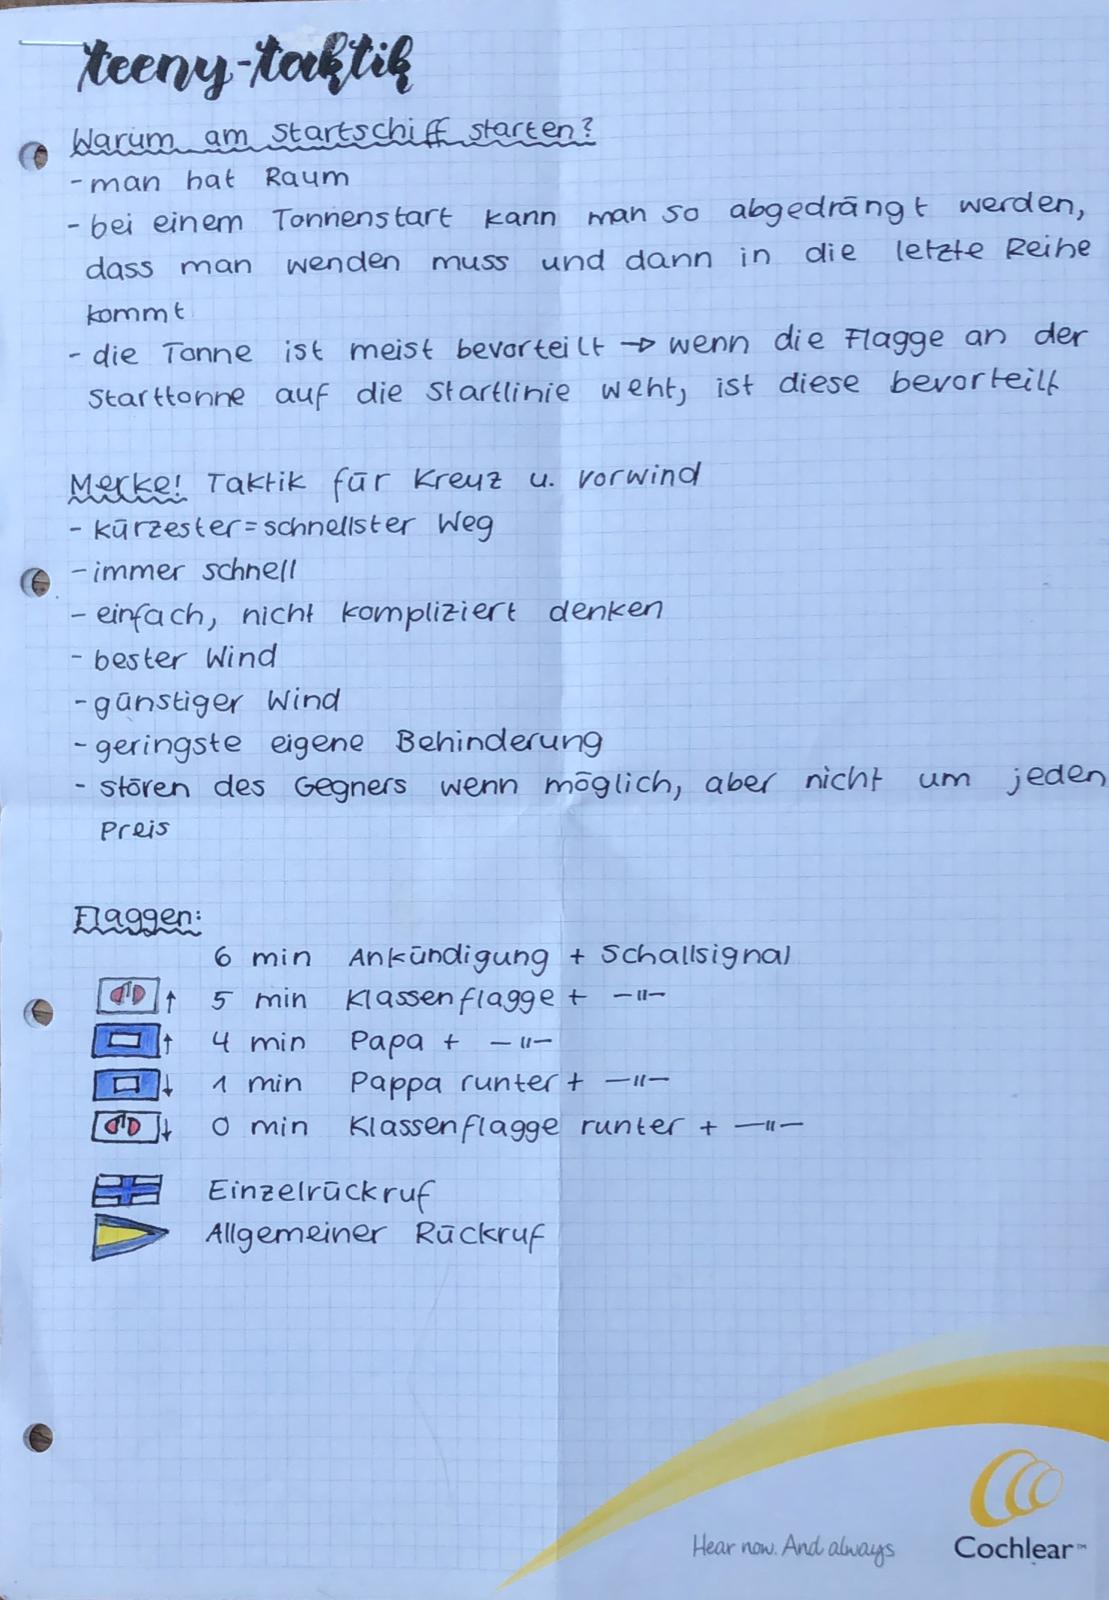 teeny-taktik
Warum am Startschiff starten?
- man hat Raum
- bei einem Tonnenstart kann man so abgedrängt werden,
dass man wenden muss und dann in die letzte Reihe
kommt
- die Tonne ist meist bevorteilt → wenn die Flagge an der
Starttonne auf die Startlinie weht, ist diese bevorteilt
Merke! Taktik für Kreuz u. Vorwind
- kürzester = schnellster Weg
- immer schnell
- einfach, nicht kompliziert denken
- bester Wind
- günstiger Wind
- geringste eigene Behinderung
- stören des Gegners wenn möglich, aber nicht um jeden
Preis
Flaggen:
6 min Ankündigung + Schallsignal
↑ 5 min Klassenflagge + —"—
↑ 4 min Papa + —"—
↓ 1 min Pappa runter + —"—
↓ 0 min Klassenflagge runter + —"—
Einzelrückruf
Allgemeiner Rückruf
Hear now. And always
Cochlear™